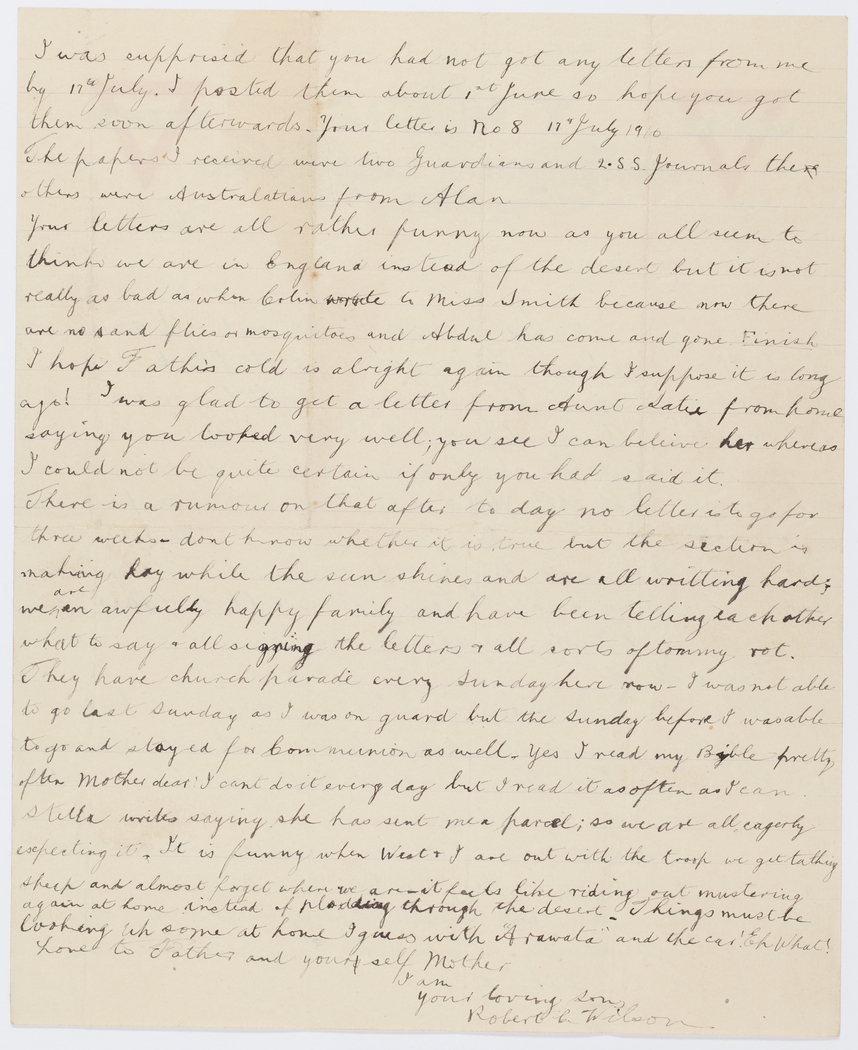 I was supprised that you had not got any letters from me
by 17th July. I posted them about 1st June so hope you got
them soon afterwards. Your letter is No 8 17th July 1916
The papers I received were two Guardians and 2. S S. Journals the
others were Australatians from Alan
Your letters are all rather funny now as you all seem to
think we are in England instead of the desert but it is not
really as bad as when Colin wrote to Miss Smith because now there
are no sand flies or mosquitoes and Abdul has come and gone Finish
I hope Father's cold is alright again though I suppose it is long
ago! I was glad to get a letter from Aunt Katie from home
saying you looked very well; you see I can beleive her whereas
I could not be quite certain if only you had said it.
There is a rumour on that after to day no letter is to go for
three weeks - dont know whether it is true but the section is
making hay while the sun shines and are all writting hard;
we are an awfully happy family and have been telling each other
what to say & all signing the letters & all sorts of tommy rot.
They have church parade every Sunday here now - I was not able
to go last Sunday as I was on guard but the Sunday before I was able
to go and stayed for Communion as well. Yes I read my Bible pretty
often Mother dear! I cant do it every day but I read it as often as I can.
Stella writes saying she has sent me a parcel; so we are all eagerly
expecting it. It is funny when West & I are out with the troop we get talking
sheep and almost forget where we are - it feels like riding out mustering
again at home instead of plodding through the desert - Things must be
looking up some at home I guess with "Arawata" and the car! Eh What!
Love to Father and your self Mother
I am
your loving son,
Robert C. Wilson